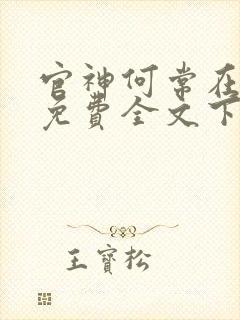 官神何常在
免費全文下
王寶松